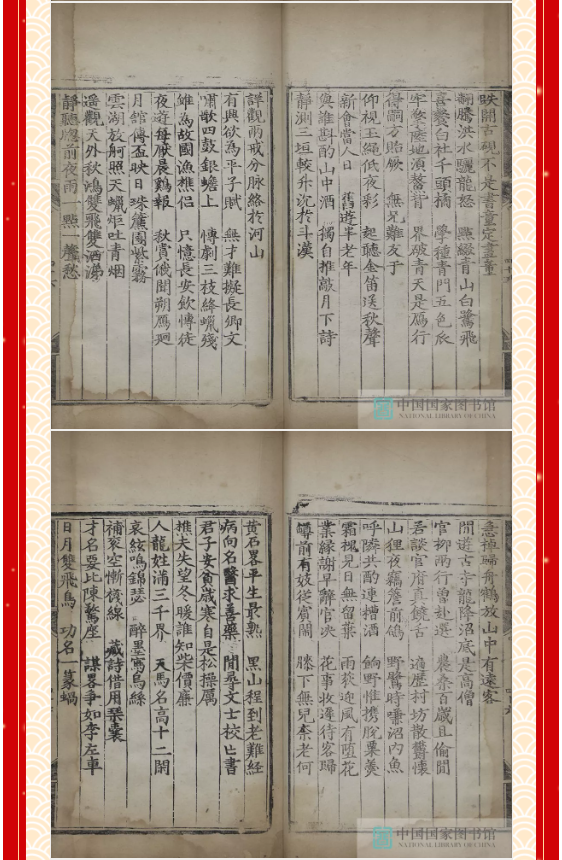 古硯不是書童定畫童
翻騰洪水驪龍怒 點綴青山白鷺飛
喜繫白社千頭橘 學種青門五色瓜
界破青天是鴈行
得嗣方貽厥 無兄難友于
仰視玉繩低夜影 起聽金笛送秋聲
新會當人日 舊遊半老年
與誰斟酌山中酒 獨自推敲月下詩
靜測三垣較升沉於斗漢
詳觀兩戒分脉絡於河山
有興欲為平子賦 無才難擬長卿文
嘯歌四鼓銀蟾上 傳劇三枝絳蠟殘
雖為故國漁樵侶 只憶長安飲博徒
夜遊每厭晨鷄報 秋賞俄聞朔鴈廻
月舘傳盃映日珠簾圍紫霧
雲湖放舸照天蠟炬吐青烟
遥觀天外秋鴻雙飛雙洒淚
靜聽牕前夜雨一點一聲愁
中国国家图书馆
NATIONAL LIBRARY OF CHINA
急掉歸舟鵝放山中有遠客
閒遊古寺龍降沼底是高僧
官柳兩行曽赴選 農桑百歲且偷閒
若談官府直饒舌 遍歷村坊散鬱懷
山狸夜竊簷前鴿 野鷺時吞沼內魚
呼隣共酌連糟酒 餉野惟携脫粟羮
霜槐見日無留葉 雨荻迎風有墮花
業緣謝早觧官决 花事收遲待客歸
罇前有妓從賓閙 膝下無兒柰老何
黄石畧平生最熟 黒山程到老難經
病向名醫求善藥 閒尋文士校亡書
君子安貧歲寒自是松操厲
樵夫失望冬暖誰知柴價廉
人龍姓滿三千界 天馬名高十二閑
哀絃鳴錦瑟 醉墨寫烏絲
補衮空慚線 藏詩借用琹囊
才名要比陳驚座 謀畧爭如李左車
日月雙飛鳥 功名一篆蝸
中国国家图书馆
NATIONAL LIBRARY OF CHINA